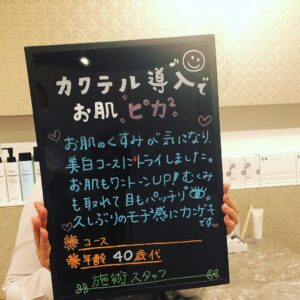 カクテル導入で
お肌ピカ²
お肌のくすみが気になり、
美白コースにトライしました。
お肌もワントーンUP!むくみ
も取れて目もパッチリ
久しぶりのモチ²感にカンゲキ
です。
コース
年齢 40歳代
施術スタッフ